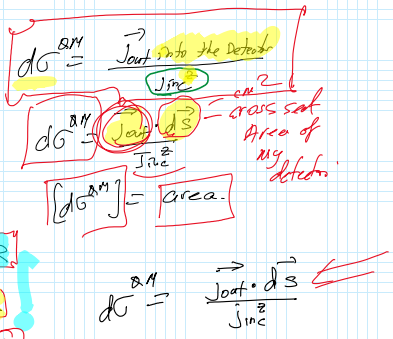 dσ^QM = J⃗out into the Detector / Jinc^z
dσ^QM = J⃗out · dS⃗ / Jinc^z = cm² cross sect Area of my detector
[dσ^QM] = area.
dσ^QM = J⃗out · dS⃗ / Jinc^z